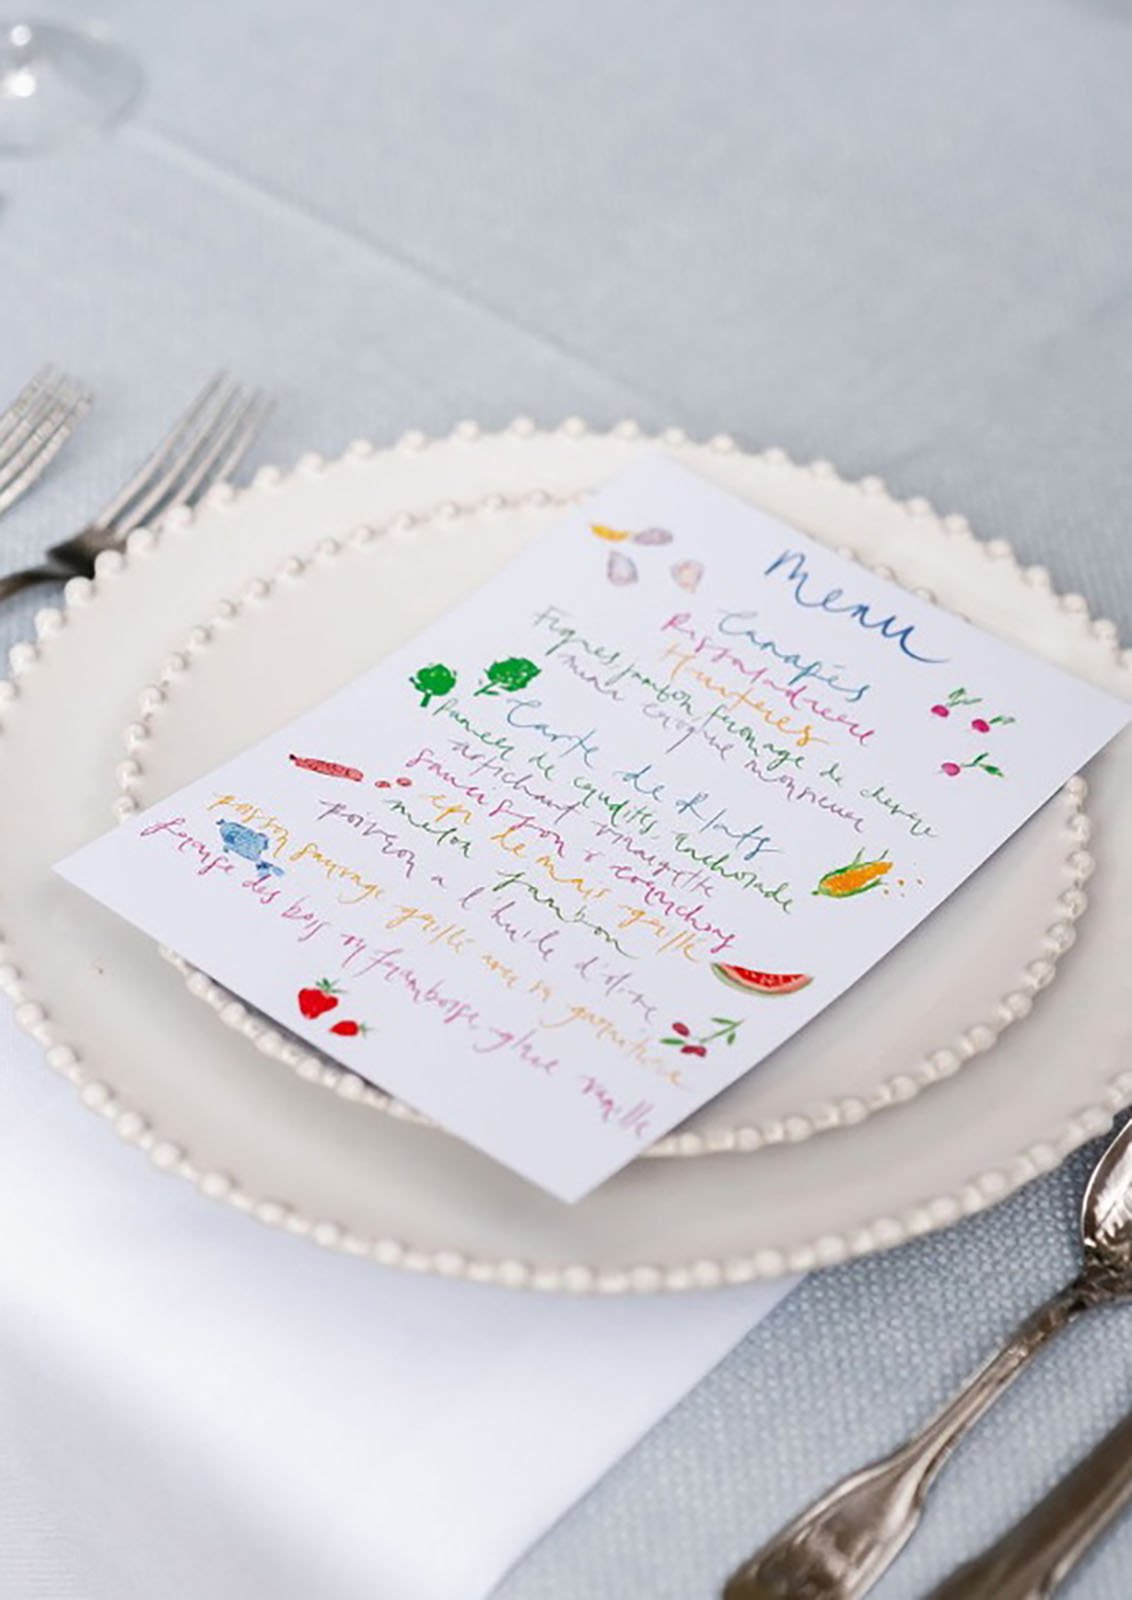 Menu
Canapés
Pissaladiere
Huitres
Figues jambon fromage de chevre
mini croque monsieur
Carte de Plats
Panier de crudités anchoiade
artichaut vinaigrette
saucisson & cornichons
epi de mais grillé
melon jambon
poivron a l'huile d'olive
poisson sauvage grillé avec sa garniture
fraise des bois ou framboise glace vanille